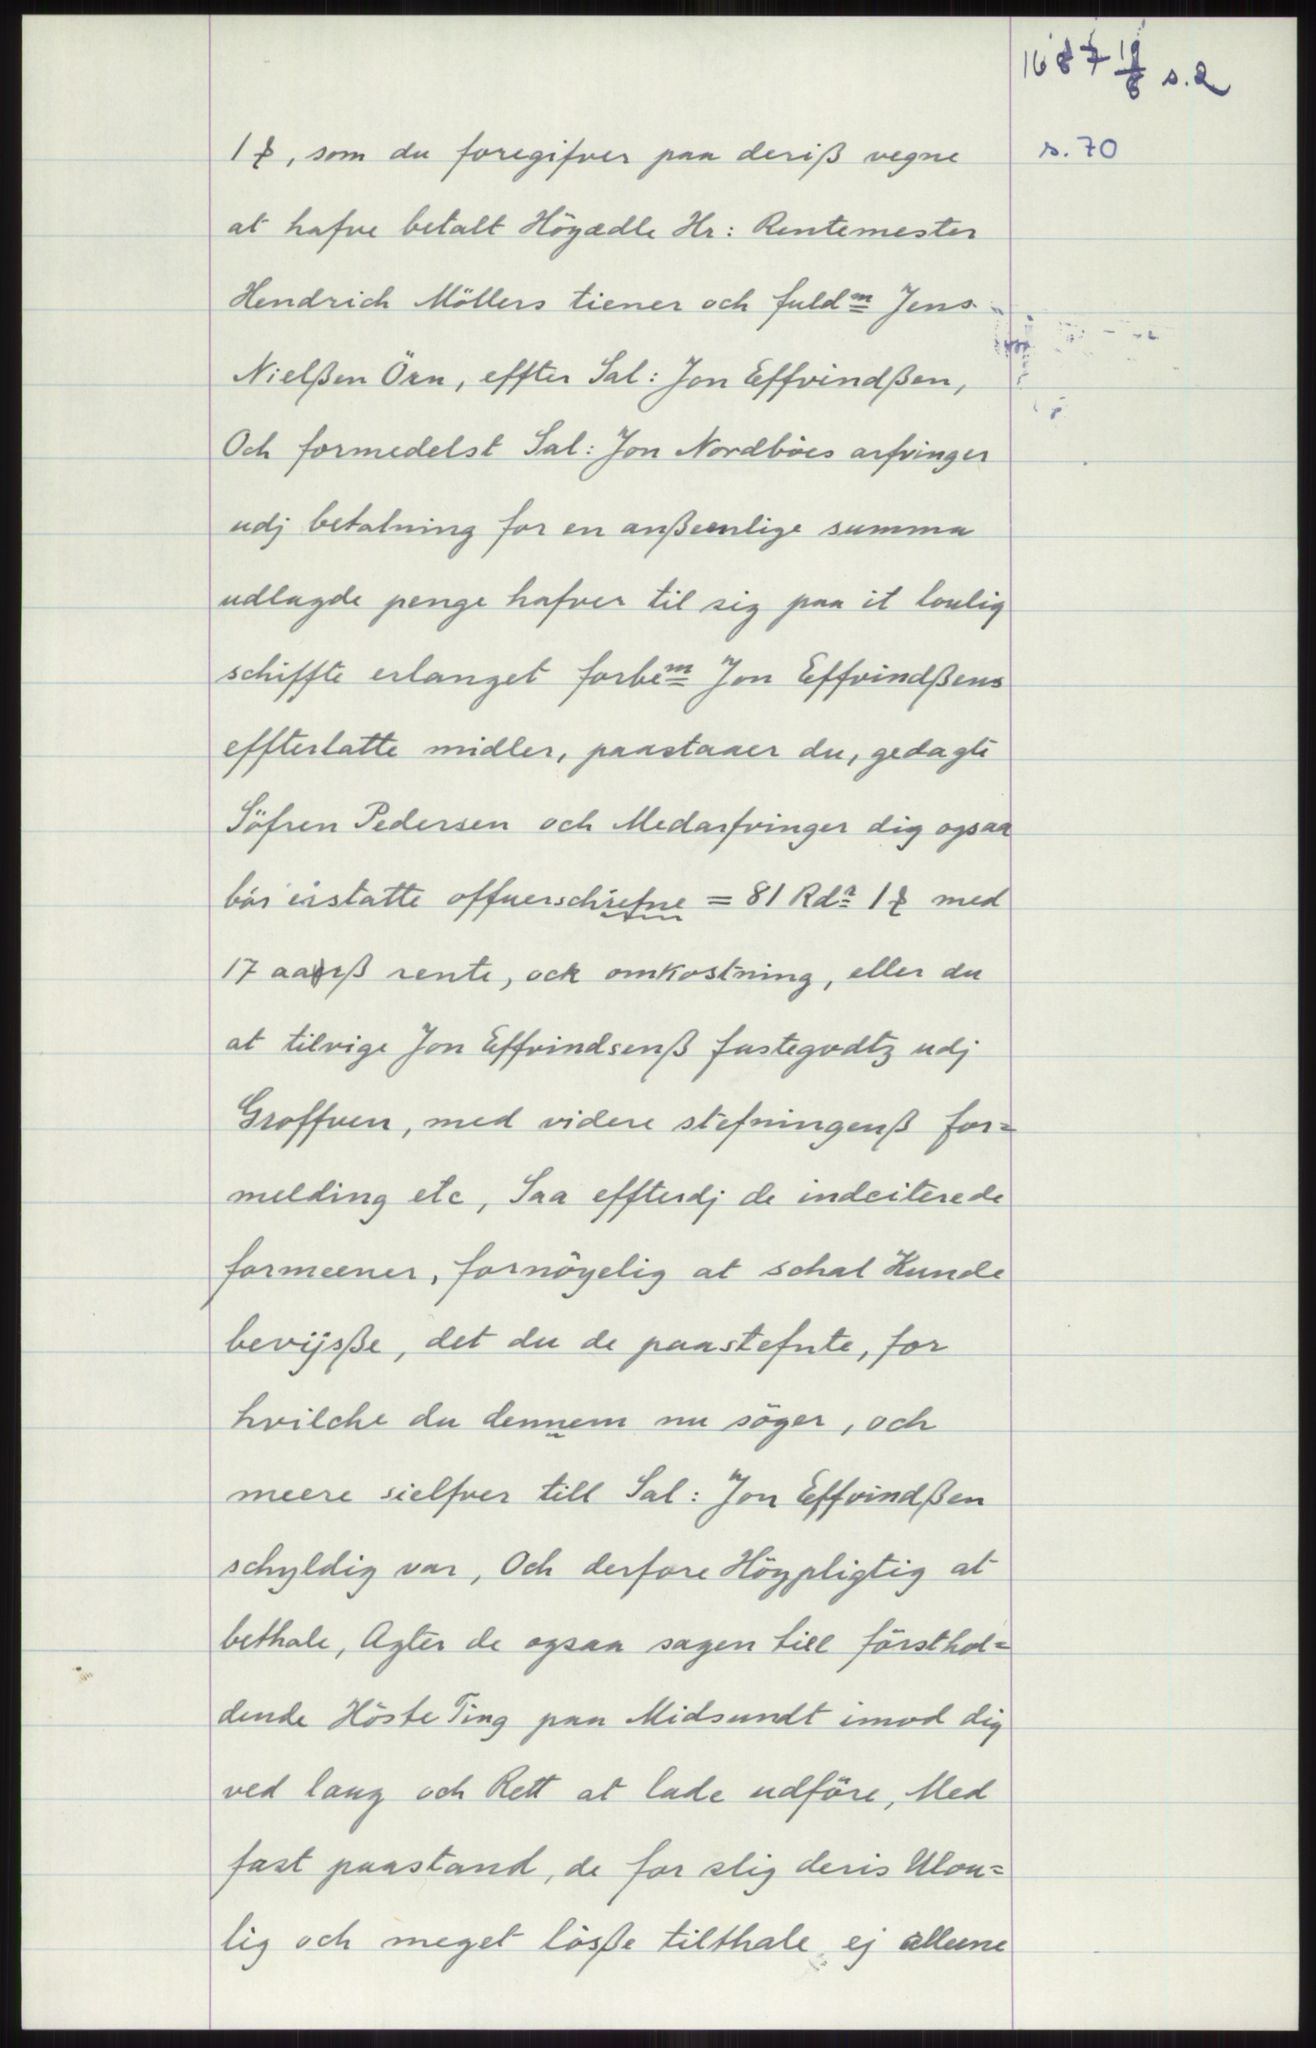 1687 19/8 s.2
s. 70
1 ₰, som du foregifver paa deriß vegne
at hafve betalt Högædle Hr: Rentemester
Hendrich Möllers tiener och fuldm Jens
Nielßen Örn, effter Sal: Jon Effvindßen,
Och formedelst Sal: Jon Nordböes arfvinger
udj betalning for en anßeenlige summa
udlagde penge hafver til sig paa it loulig
schiffte erlanget forbem Jon Effvindßens
effterlatte midler, paastaaer du, gedagte
Söfren Pedersen och Medarfvinger dig ogsaa
bör erstatte offuerschrefne = 81 Rdr 1 ₰ med
17 aarß rente, ock omkostning, eller du
at tilvige Jon Effvindsenß fastegodtz udj
Groffven, med videre stefningenß for=
melding etc, Saa effterdj de indciterede
formeener, fornöyelig at schal Kunde
bevijsße, det du de paastefnte, for
hvilche du dennem nu söger, och
meere sielfver till Sal: Jon Effvindßen
schyldig var, Och derfore Höypligtig at
bethale, Agter de ogsaa sagen till försthol=
dende Höste Ting paa Midsundt imod dig
ved laug och Rett at lade udföre, Med
fast paastand, de for slig deris Ulou=
lig och meget lösße tilthale ej alleene